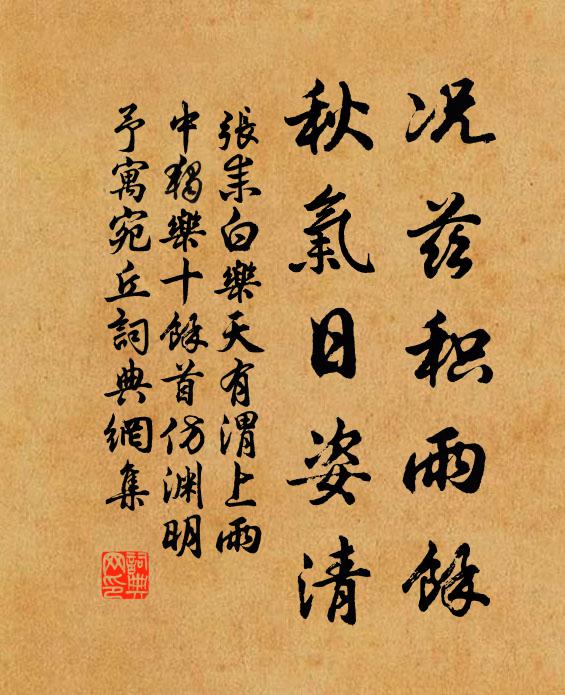 况兹积雨餘
秋氣日姿清
張耒白樂天有渭上雨
中獨樂十餘首仿淵明
予寓宛丘詞典網集
詞典
网印